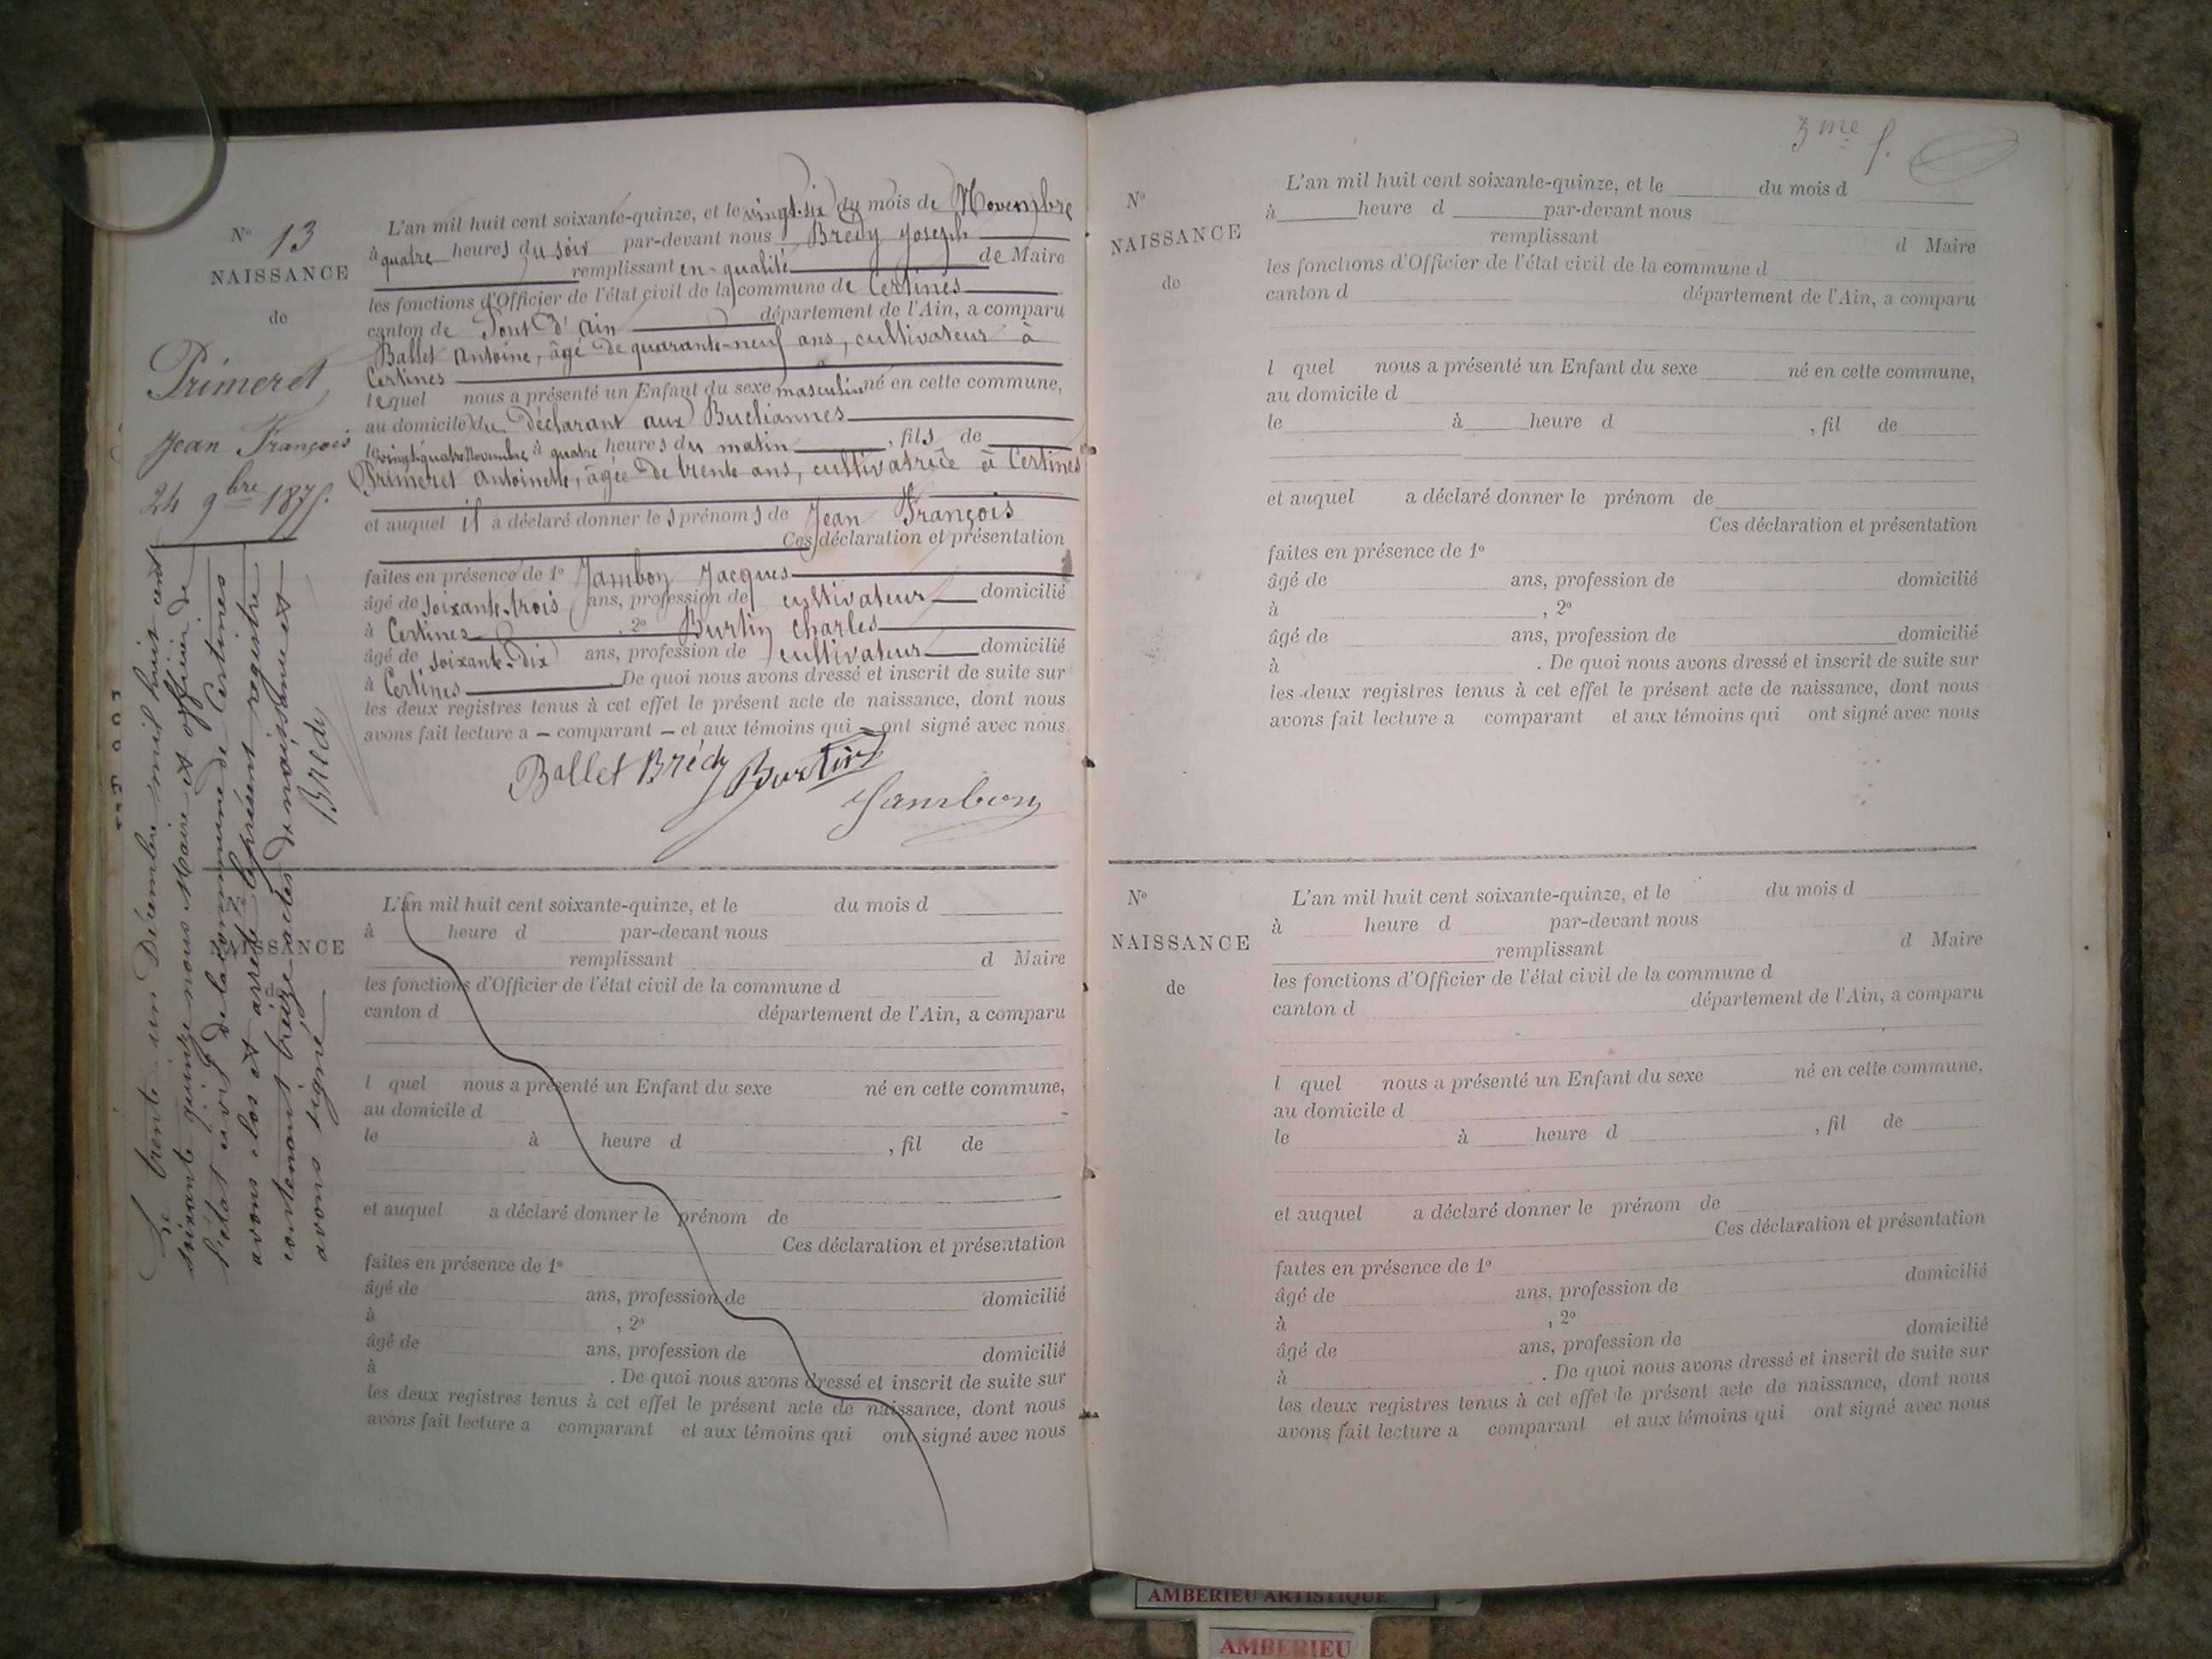 N° 13
NAISSANCE
de
Primeret
Jean François
24 9bre 1875.
L'an mil huit cent soixante-quinze, et le vingt-six du mois de Novembre
à quatre heures du soir par-devant nous Brédy Joseph
remplissant en qualité de Maire
les fonctions d'Officier de l'état civil de la commune de Certines
canton de Pont d'ain département de l'Ain, a comparu
Ballet Antoine, âgé de quarante-neuf ans, cultivateur à
Certines
lequel nous a présenté un Enfant du sexe masculin né en cette commune,
au domicile du Déclarant aux Bucliannes
le vingt-quatre Novembre à quatre heures du matin, fils de
Primeret Antoinette, âgée de trente ans, cultivatrice à Certines
et auquel il a déclaré donner les prénoms de Jean François
Ces déclaration et présentation
faites en présence de 1° Jambon Jacques
âgé de soixante-trois ans, profession de cultivateur domicilié
à Certines, 2° Burtin Charles
âgé de soixante-dix ans, profession de cultivateur domicilié
à Certines. De quoi nous avons dressé et inscrit de suite sur
les deux registres tenus à cet effet le présent acte de naissance, dont nous
avons fait lecture a – comparant – et aux témoins qui – ont signé avec nous
Ballet Brédy Burtin
Jambon
Le trente un Décembre mil huit cent
soixante quinze nous Maire et officier de
l'état civil de la commune de Certines
avons clos et arrêté le présent registre
contenant treize actes de naissance et
avons signé
Brédy
NAISSANCE
d
L'an mil huit cent soixante-quinze, et le du mois d
à heure d par-devant nous
remplissant d Maire
les fonctions d'Officier de l'état civil de la commune d
canton d département de l'Ain, a comparu
l quel nous a présenté un Enfant du sexe né en cette commune,
au domicile d
le à heure d , fil de
et auquel a déclaré donner le prénom de
Ces déclaration et présentation
faites en présence de 1°
âgé de ans, profession de domicilié
à , 2°
âgé de ans, profession de domicilié
à . De quoi nous avons dressé et inscrit de suite sur
les deux registres tenus à cet effet le présent acte de naissance, dont nous
avons fait lecture a comparant et aux témoins qui ont signé avec nous
3me f.
N°
NAISSANCE
de
L'an mil huit cent soixante-quinze, et le du mois d
à heure d par-devant nous
remplissant d Maire
les fonctions d'Officier de l'état civil de la commune d
canton d département de l'Ain, a comparu
l quel nous a présenté un Enfant du sexe né en cette commune,
au domicile d
le à heure d , fil de
et auquel a déclaré donner le prénom de
Ces déclaration et présentation
faites en présence de 1°
âgé de ans, profession de domicilié
à , 2°
âgé de ans, profession de domicilié
à . De quoi nous avons dressé et inscrit de suite sur
les deux registres tenus à cet effet le présent acte de naissance, dont nous
avons fait lecture a comparant et aux témoins qui ont signé avec nous
N°
NAISSANCE
de
L'an mil huit cent soixante-quinze, et le du mois d
à heure d par-devant nous
remplissant d Maire
les fonctions d'Officier de l'état civil de la commune d
canton d département de l'Ain, a comparu
l quel nous a présenté un Enfant du sexe né en cette commune,
au domicile d
le à heure d , fil de
et auquel a déclaré donner le prénom de
Ces déclaration et présentation
faites en présence de 1°
âgé de ans, profession de domicilié
à , 2°
âgé de ans, profession de domicilié
à . De quoi nous avons dressé et inscrit de suite sur
les deux registres tenus à cet effet le présent acte de naissance, dont nous
avons fait lecture a comparant et aux témoins qui ont signé avec nous
AMBERIEU ARTISTIQUE
AMBERIEU